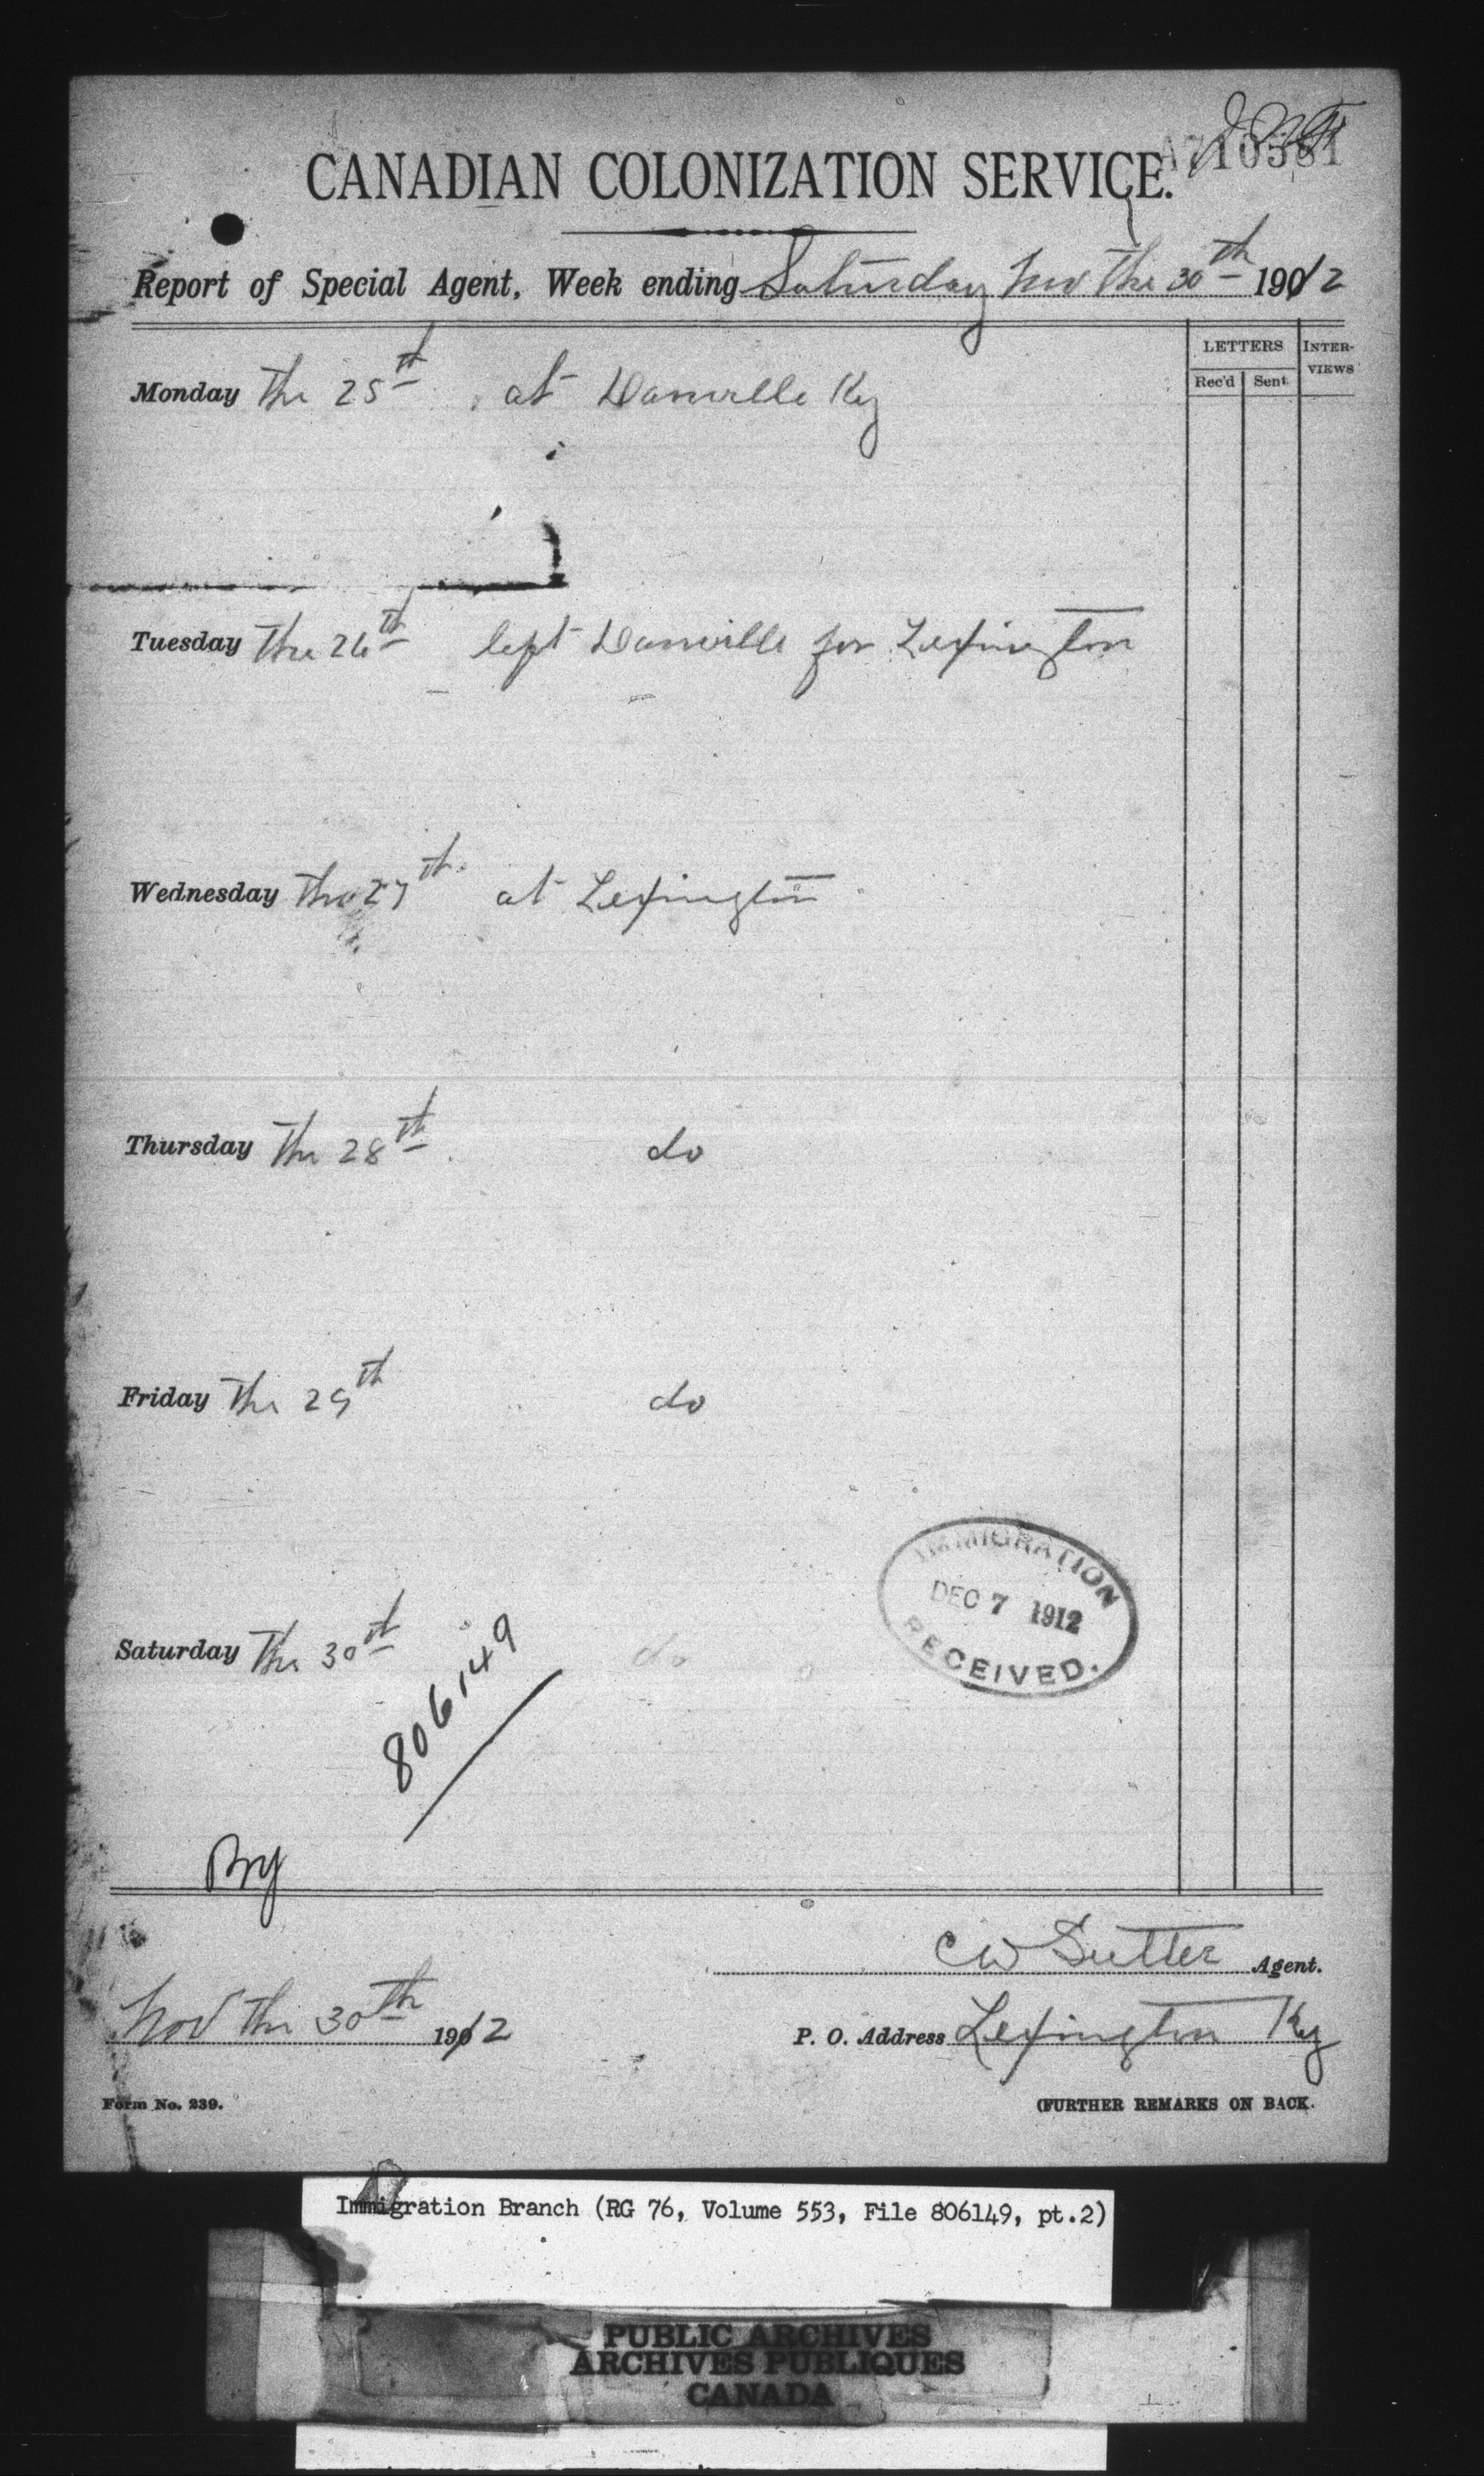 A710581
CANADIAN COLONIZATION SERVICE.
Report of Special Agent, Week ending Saturday Nov the 30th 1912
LETTERS INTER-VIEWS
Rec'd Sent
Monday the 25th at Danville Ky
Tuesday the 26th left Danville for Lexington
Wednesday the 27th at Lexington
Thursday the 28th do
Friday the 29th do
IMMIGRATION
DEC 7 1912
RECEIVED.
Saturday the 30th do
806149
CW Sutter Agent.
Nov the 30th 1912 P. O. Address Lexington Ky
Form No. 239. (FURTHER REMARKS ON BACK.
Immigration Branch (RG 76, Volume 553, File 806149, pt.2)
PUBLIC ARCHIVES
ARCHIVES PUBLIQUES
CANADA